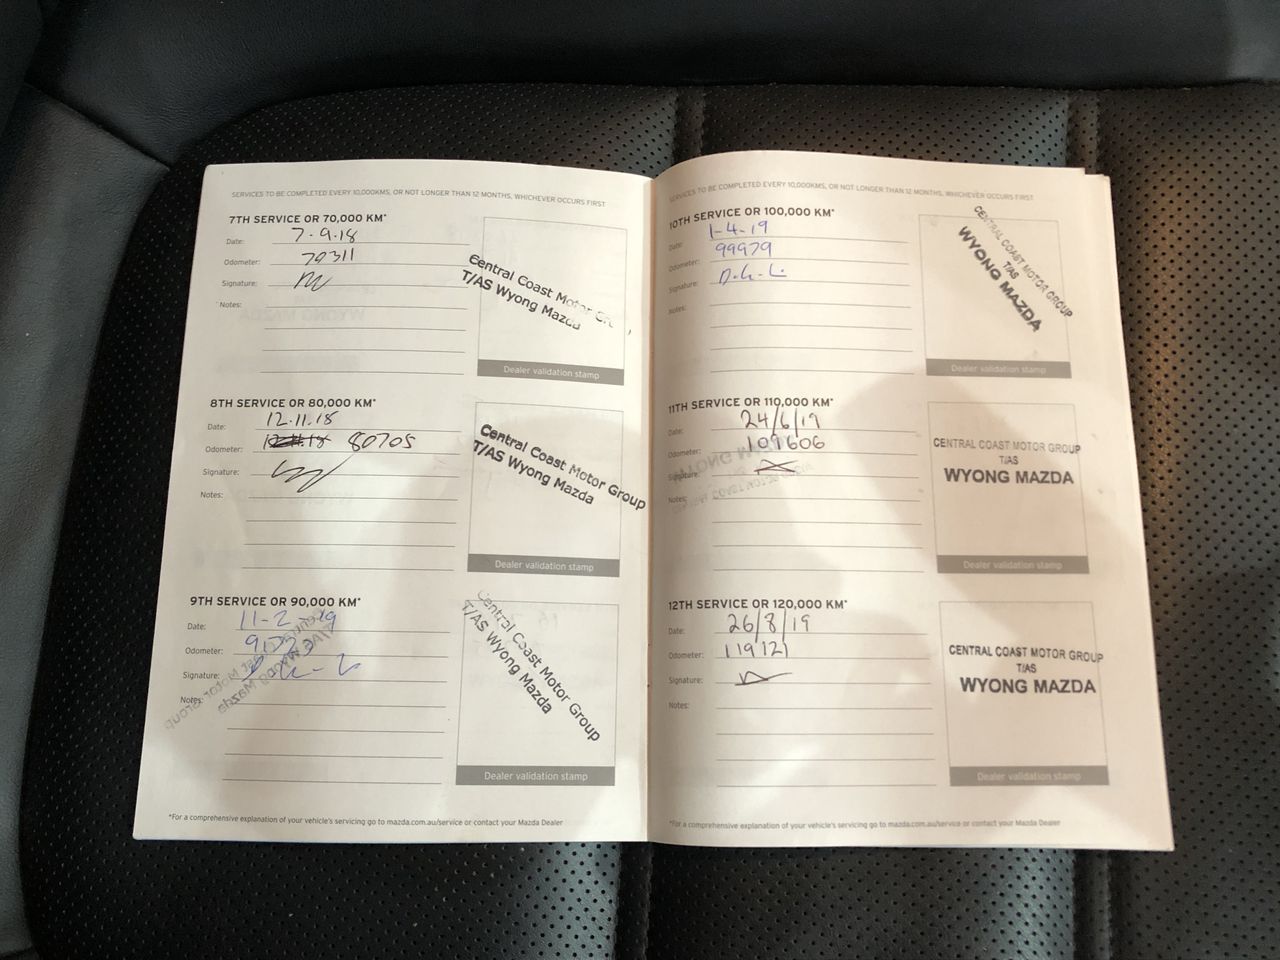 SERVICES TO BE COMPLETED EVERY 10,000KMS, OR NOT LONGER THAN 12 MONTHS, WHICHEVER OCCURS FIRST
7TH SERVICE OR 70,000 KM*
Date: 7.9.18
Odometer: 70311
Signature:
Notes:
Central Coast Motor
T/AS Wyong Mazda
Dealer validation stamp
8TH SERVICE OR 80,000 KM*
Date: 12.11.18
Odometer: 80705
Signature:
Notes:
Central Coast Motor Group
T/AS Wyong Mazda
Dealer validation stamp
9TH SERVICE OR 90,000 KM*
Date: 11-2-19
Odometer:
Signature:
Notes:
Central Coast Motor Group
T/AS Wyong Mazda
Dealer validation stamp
*For a comprehensive explanation of your vehicle's servicing go to mazda.com.au/service or contact your Mazda Dealer
SERVICES TO BE COMPLETED EVERY 10,000KMS, OR NOT LONGER THAN 12 MONTHS, WHICHEVER OCCURS FIRST
10TH SERVICE OR 100,000 KM*
Date: 1-4-19
Odometer: 99979
Signature:
Notes:
CENTRAL COAST MOTOR GROUP
T/AS
WYONG MAZDA
Dealer validation stamp
11TH SERVICE OR 110,000 KM*
Date: 24/6/19
Odometer: 109606
Signature:
Notes:
CENTRAL COAST MOTOR GROUP
T/AS
WYONG MAZDA
Dealer validation stamp
12TH SERVICE OR 120,000 KM*
Date: 26/8/19
Odometer: 119121
Signature:
Notes:
CENTRAL COAST MOTOR GROUP
T/AS
WYONG MAZDA
Dealer validation stamp
*For a comprehensive explanation of your vehicle's servicing go to mazda.com.au/service or contact your Mazda Dealer